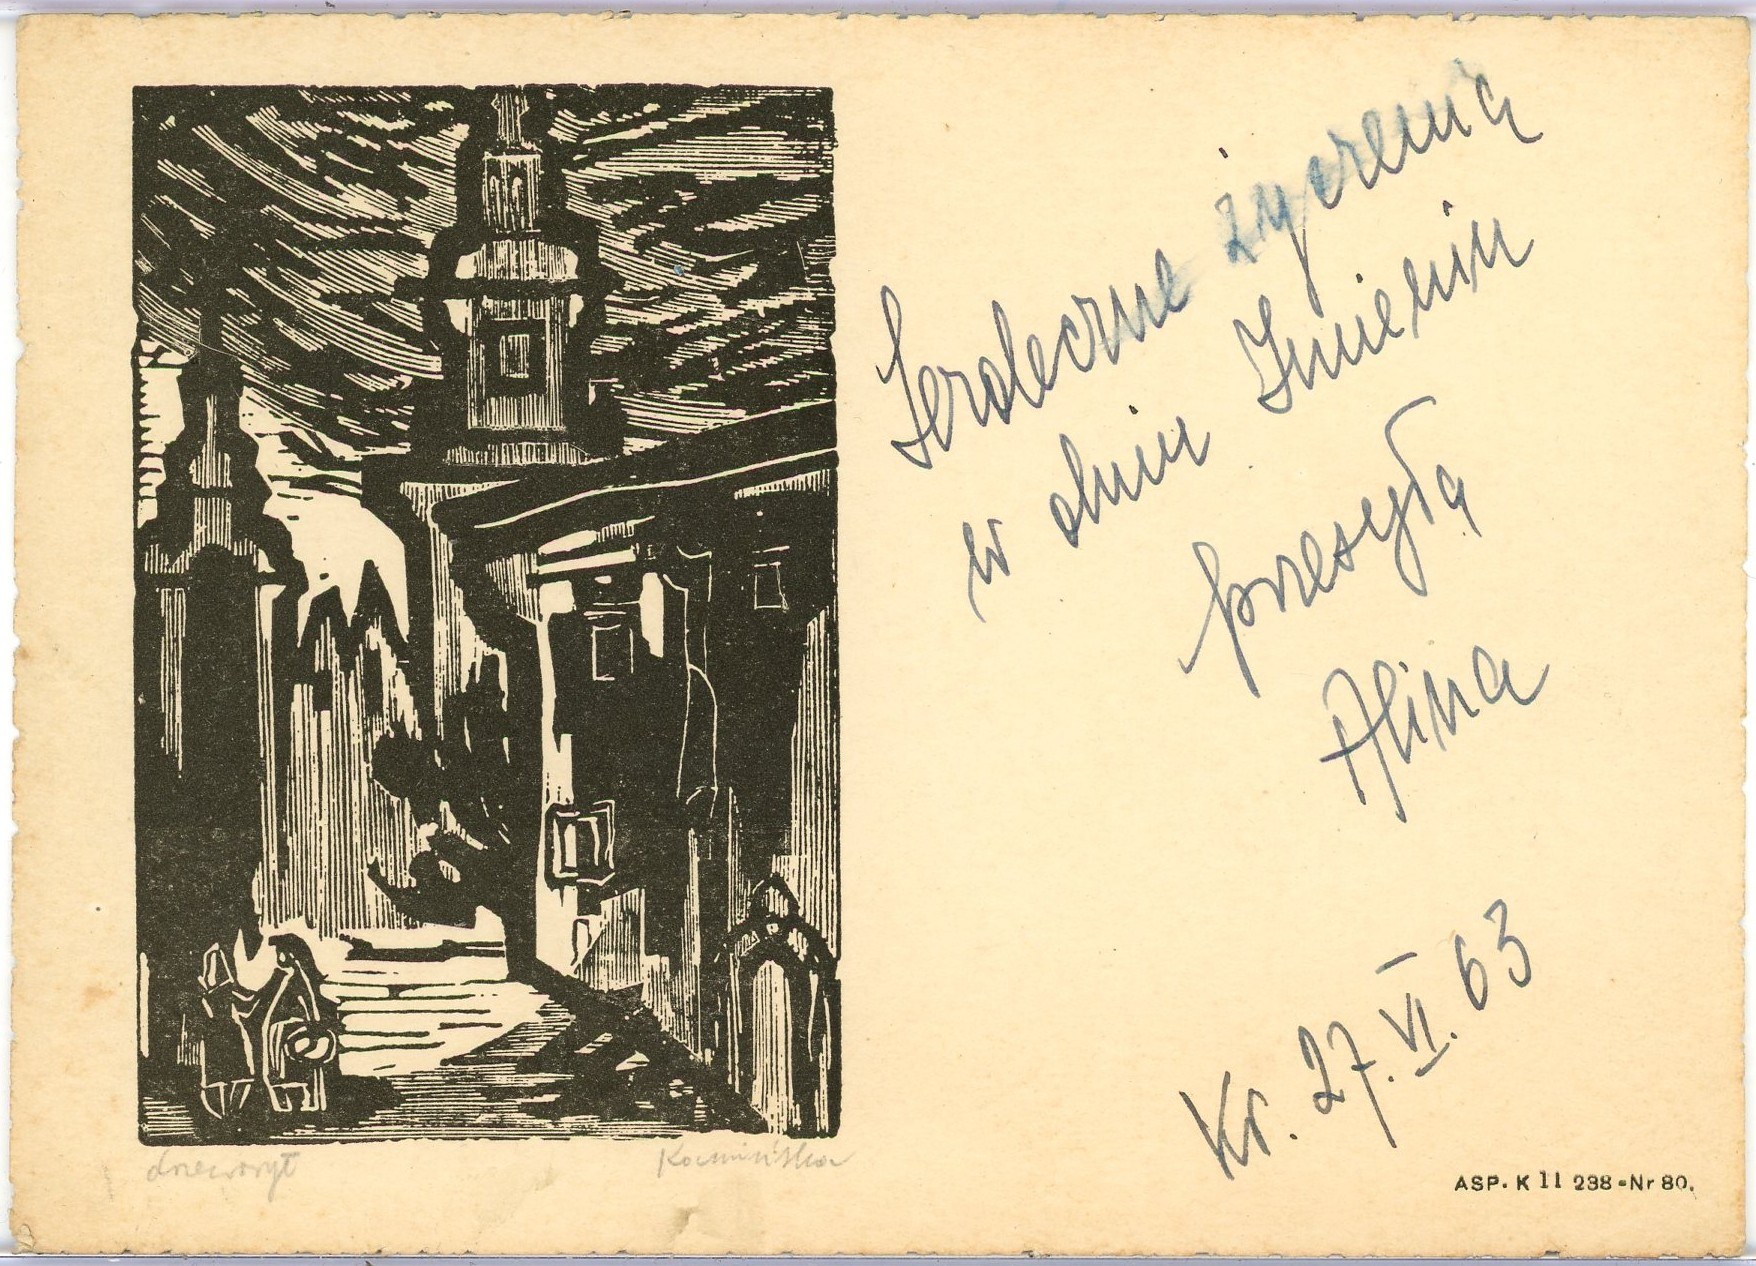 Serdeczne życzenia
w dniu Imienin
przesyła
Alina
Kr. 27. VI. 63
drzeworyt
Kamińska
ASP. K 11 238-Nr 80.